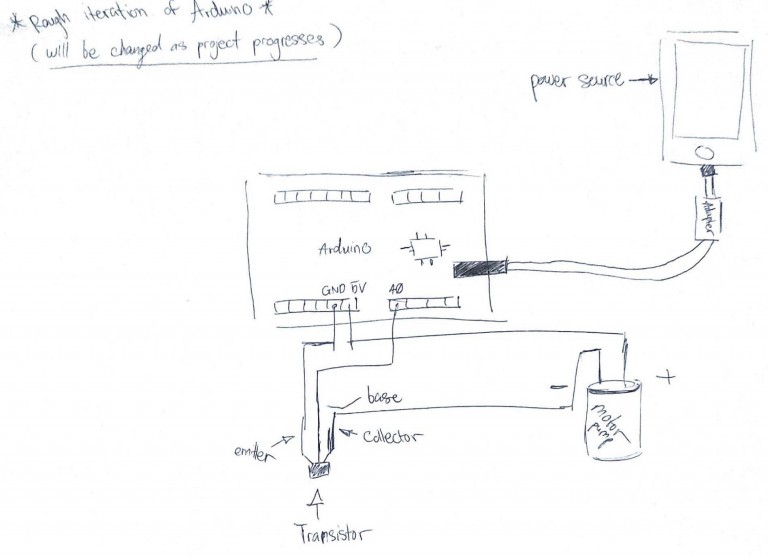 * Rough iteration of Arduino *
(will be changed as project progresses)
power source
Adapter
Arduino
GND 5V
base
collector
emitter
motor
pump
+
-
Transistor